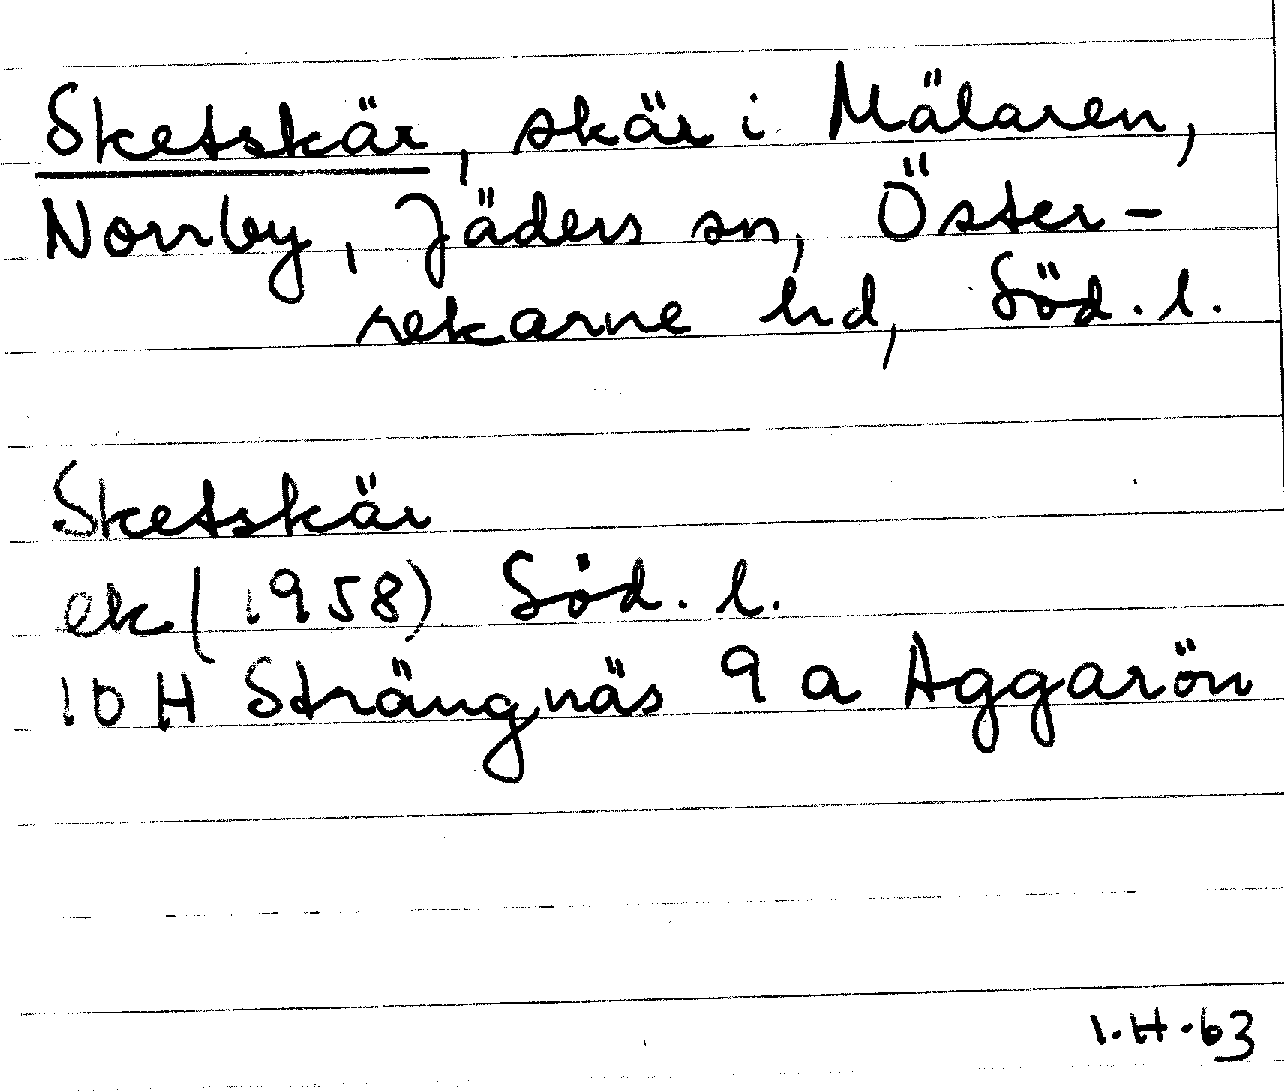 Sketskär, skär i Mälaren,
Norrby, Jäders sn, Öster-
rekarne hd, Söd. l.
Sketskär
ek (1958) Söd. l.
10 H Strängnäs 9 a Aggarön
I.H.63